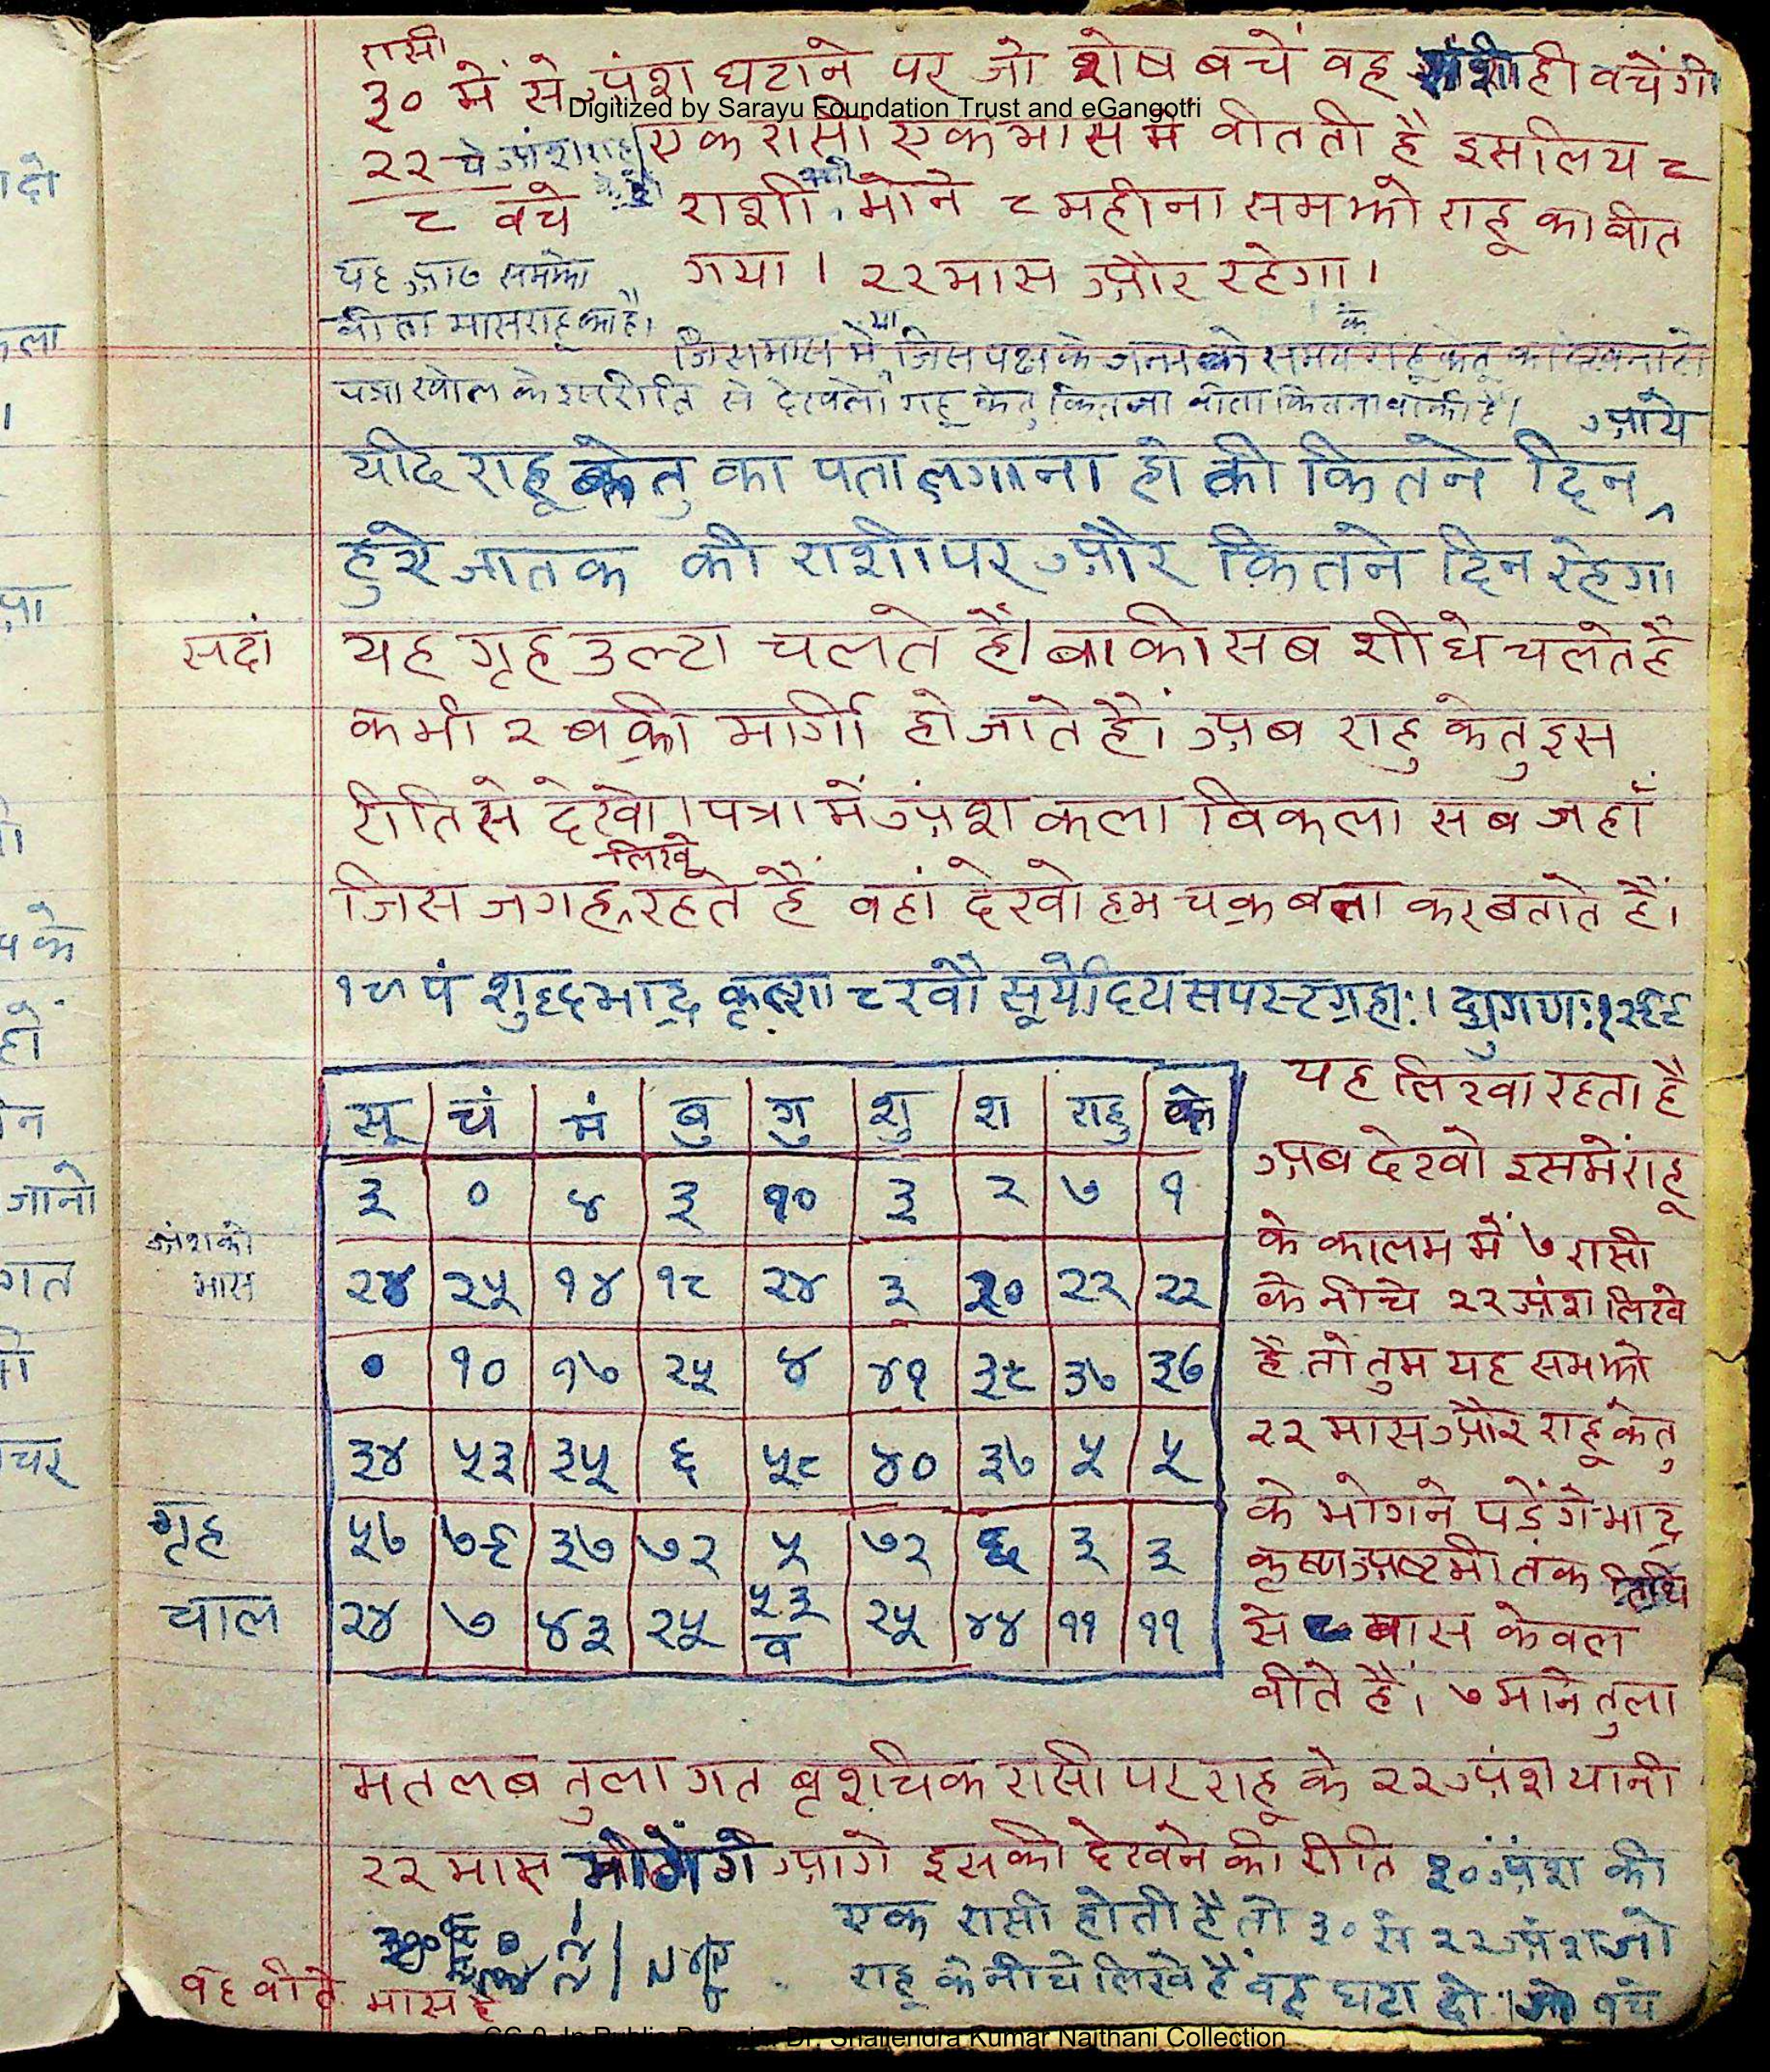 रासी
३० में से अंश घटाने पर जो शेष बचें वह ही बचेंगी
Digitized by Sarayu Foundation Trust and eGangotri
२२ ये अंश राहु एक रासी एक मास में बीतती है इसलिय ८
८ बचे राशी माने ८ महीना समझो राहू का बीत
यह आठ समझो गया। २२ मास और रहेगा।
बीता मास राहू का है।
जिस मास में या जिस पक्ष के जन्म के समय राहू केतू का देखना हो
पत्रा खोल के इस रीति से देखलो राहू केतु कितना बीता कितना बाकी है।
यदि राहू केतु का पता लगाना हो की कितने दिन आये
हुये जातक की राशी पर और कितने दिन रहेगा
सदां यह गृह उल्टा चलते हैं। बाकी सब शीधे चलते है
कभी २ बक्री मार्गी हो जाते है। अब राहु केतु इस
रीति से देखो। पत्रा में अंश कला विकला सब जहाँ
जिस जगह लिखे रहते है वहां देखो हम चक्र बना कर बताते हैं।
१७ पं शुद्ध भाद्र कृष्णा ८ रवौ सूर्योदय सपस्ट ग्रहाः। द्युगणः १२६६
सू चं मं बु गु शु श राहु के
३ ० ४ ३ १० ३ २ ७ १
अंश की मास
२४ २५ १४ १८ २४ ३ २० २२ २२
० १० १७ २५ ४ ४१ ३८ ३७ ३७
३४ ५३ ३५ ६ ५८ ४० ३७ ५ ५
गृह ५७ ७६ ३७ ७२ ५ ७२ ६ ३ ३
चाल २४ ७ ४३ २५ ५३ व २५ ४४ ११ ११
यह लिखा रहता है
अब देखो इसमें राहू
के कालम में ७ रासी
के नीचे २२ अंश लिखे
है तो तुम यह समझो
२२ मास और राहू केतु
के भोगने पड़ेंगे भाद्र
कृष्ण अष्टमी तक तिथि
से ८ मास केवल
बीते हैं। ७ माने तुला
मतलब तुला गत बृशचिक रासी पर राहू के २२ अंश यानी
२२ मास भोगेंगे आगे इसको देखने की रीति ३० अंश की
एक रासी होती है तो ३० से २२ अंश जो
राहू के नीचे लिखे हैं वह घटा दो। बचे
वह बीते मास है
CC-0. In Public Domain. Dr. Shailendra Kumar Naithani Collection